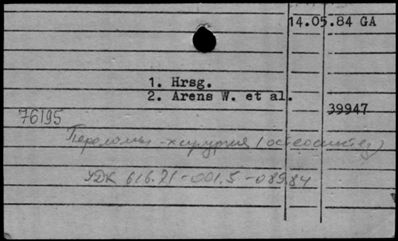 14.05.84 GA
1. Hrsg.
2. Arens W. et al.
39947
76195
Переломы - хирургия (остеосинтез)
УДК 616.71-001.5-089.84